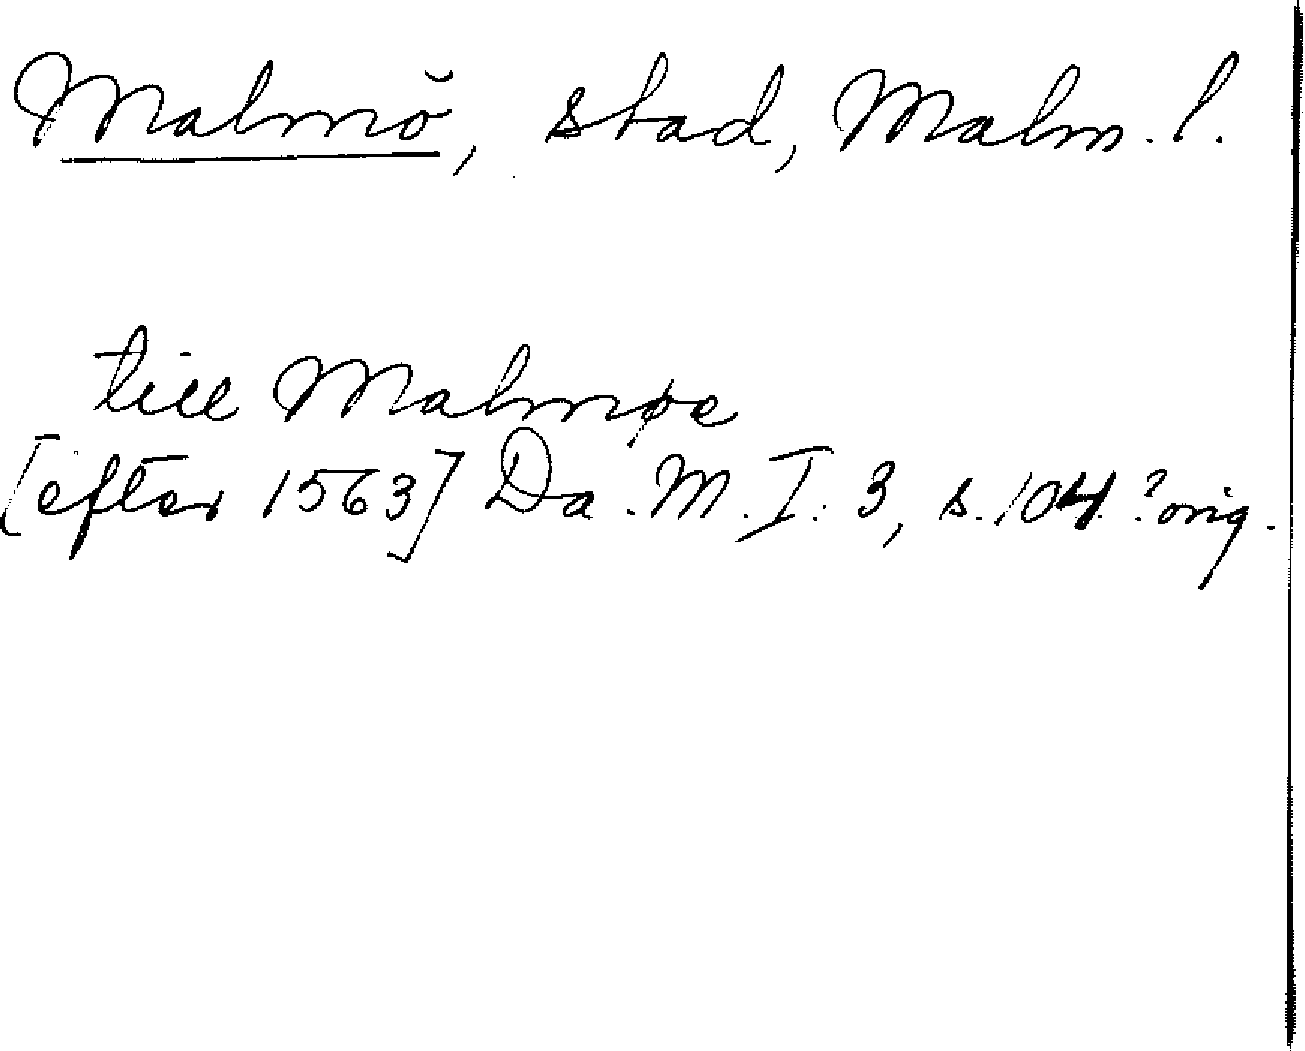 Malmö, stad, Malm. l.
till Malmøe
[efter 1563] Da. M. I. 3, s. 104 ? orig.